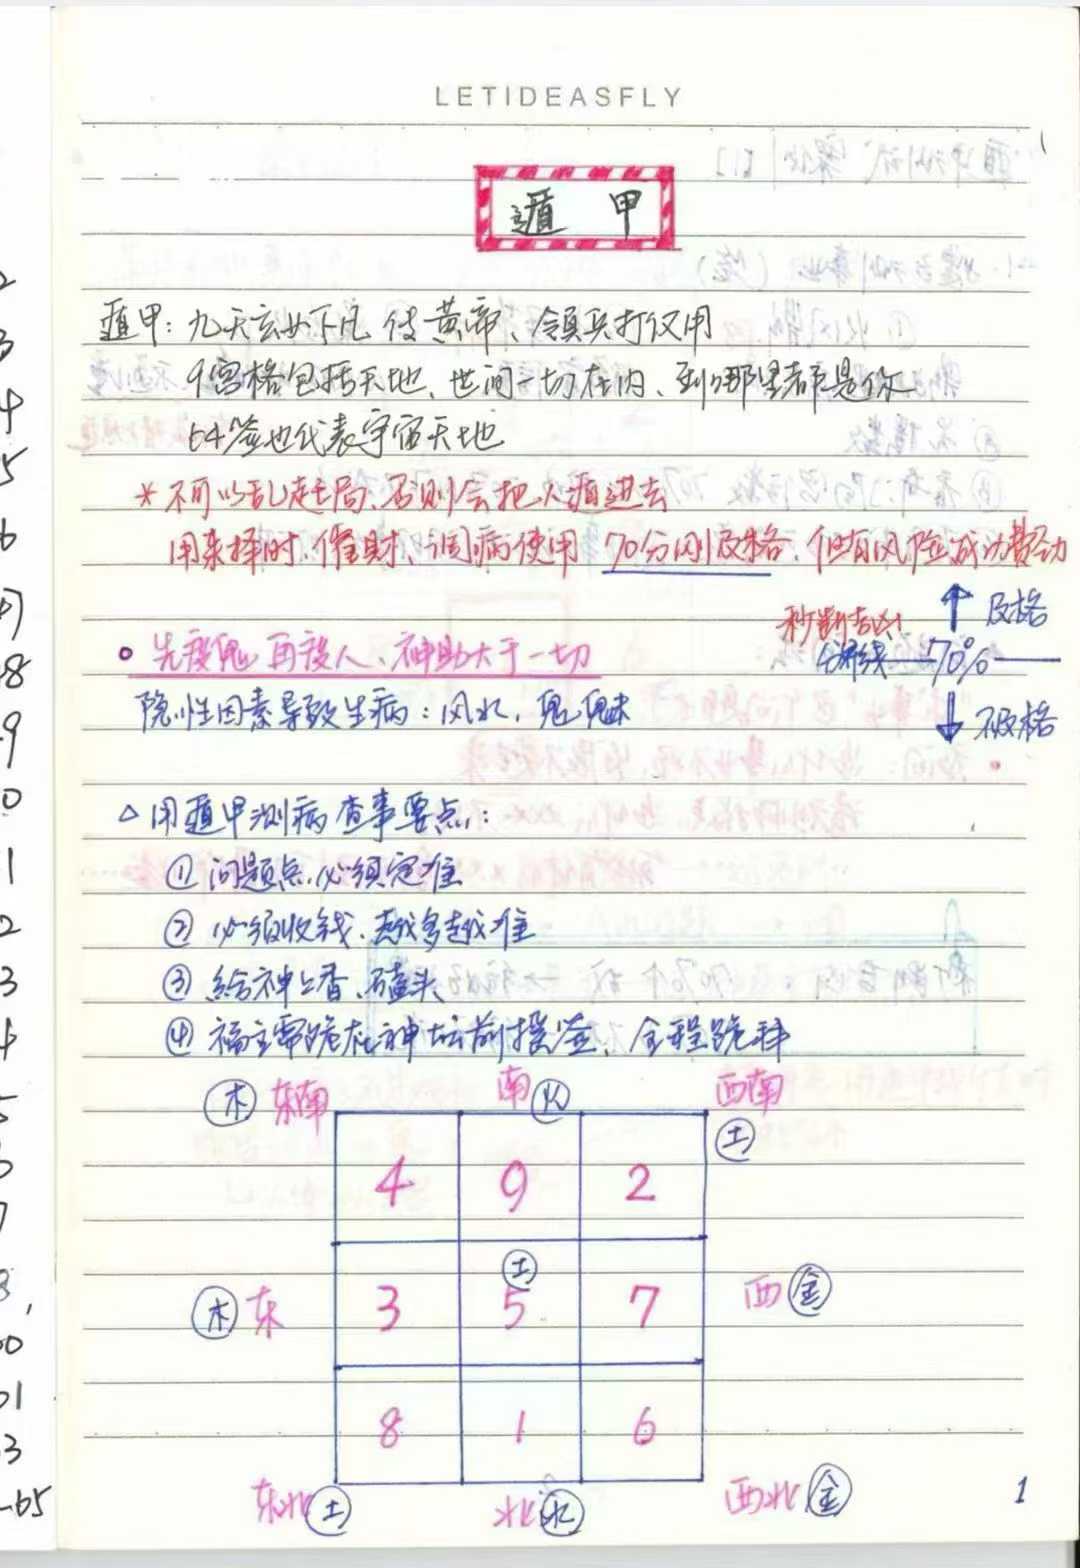 LETIDEASFLY
遁 甲
遁甲：九天玄女下凡 传黄帝、领兵打仗用
9宫格包括天地、世间一切在内、到哪里都是你
64签也代表宇宙天地
* 不可以乱起局、否则会把人遁进去
用来择时、催财、调病使用 70分刚及格、但有风险 成功费劲
秒断吉凶
及格
分界线 70%
不及格
• 先度鬼 再度人、神助大于一切
隐性因素导致生病：风水，鬼魅
△ 用遁甲测病查事要点：
① 问题点必须定准
② 必须收钱、越多越准
③ 给神上香、磕头
④ 福主需跪在神坛前摸签、全程跪拜
木 东南 南 火 西南
土
4 9 2
土
木 东 3 5 7 西 金
8 1 6
东北 土 北 水 西北 金
1